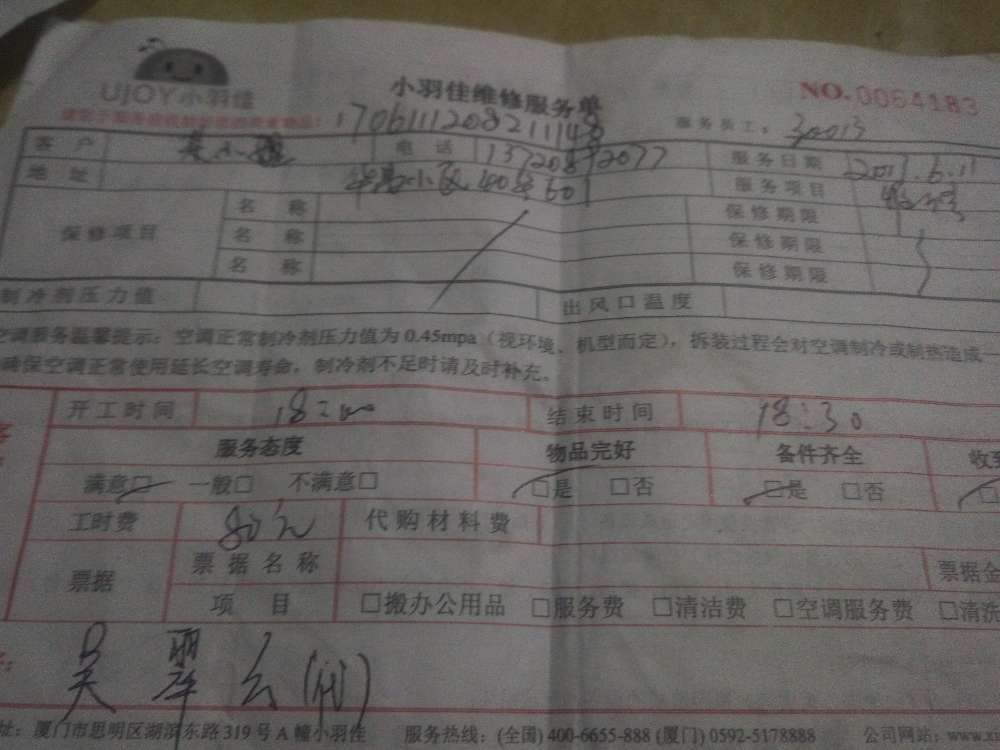 UJOY小羽佳
小羽佳维修服务单
NO.0064183
服务员工：33013
客户 吴小 电话 13720872077 服务日期 2017.6.11
地址 小区40车601 服务项目
保修项目 名称 保修期限
名称 保修期限
名称 保修期限
制冷剂压力值 出风口温度
空调服务温馨提示：空调正常制冷剂压力值为0.45mpa（视环境、机型而定），拆装过程会对空调制冷或制热造成一
确保空调正常使用延长空调寿命，制冷剂不足时请及时补充。
开工时间 18:00 结束时间 18:30
服务态度 物品完好 备件齐全 收到
满意□ 一般□ 不满意□ □是 □否 □是 □否 □
工时费 80元 代购材料费
票据 票据名称 票据金
项目 □搬办公用品 □服务费 □清洁费 □空调服务费 □清洗
吴翠云(代)
址：厦门市思明区湖滨东路319号A幢小羽佳 服务热线：(全国) 400-6655-888 (厦门) 0592-5178888 公司网站：www.x